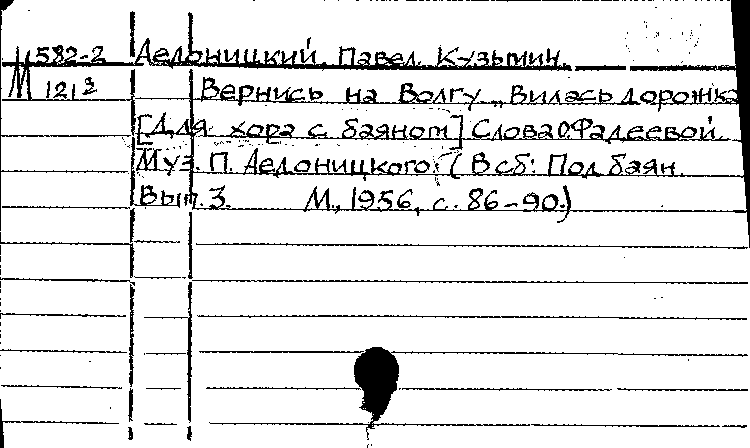 М 582-2 Аедоницкий, Павел Кузьмин.
1213 Вернись на Волгу „Вилась дорожка
[Для хора с баяном] Слова О.Фадеевой.
Муз. П. Аедоницкого. (В сб: Под баян.
Вып. 3. М., 1956, с. 86-90.)